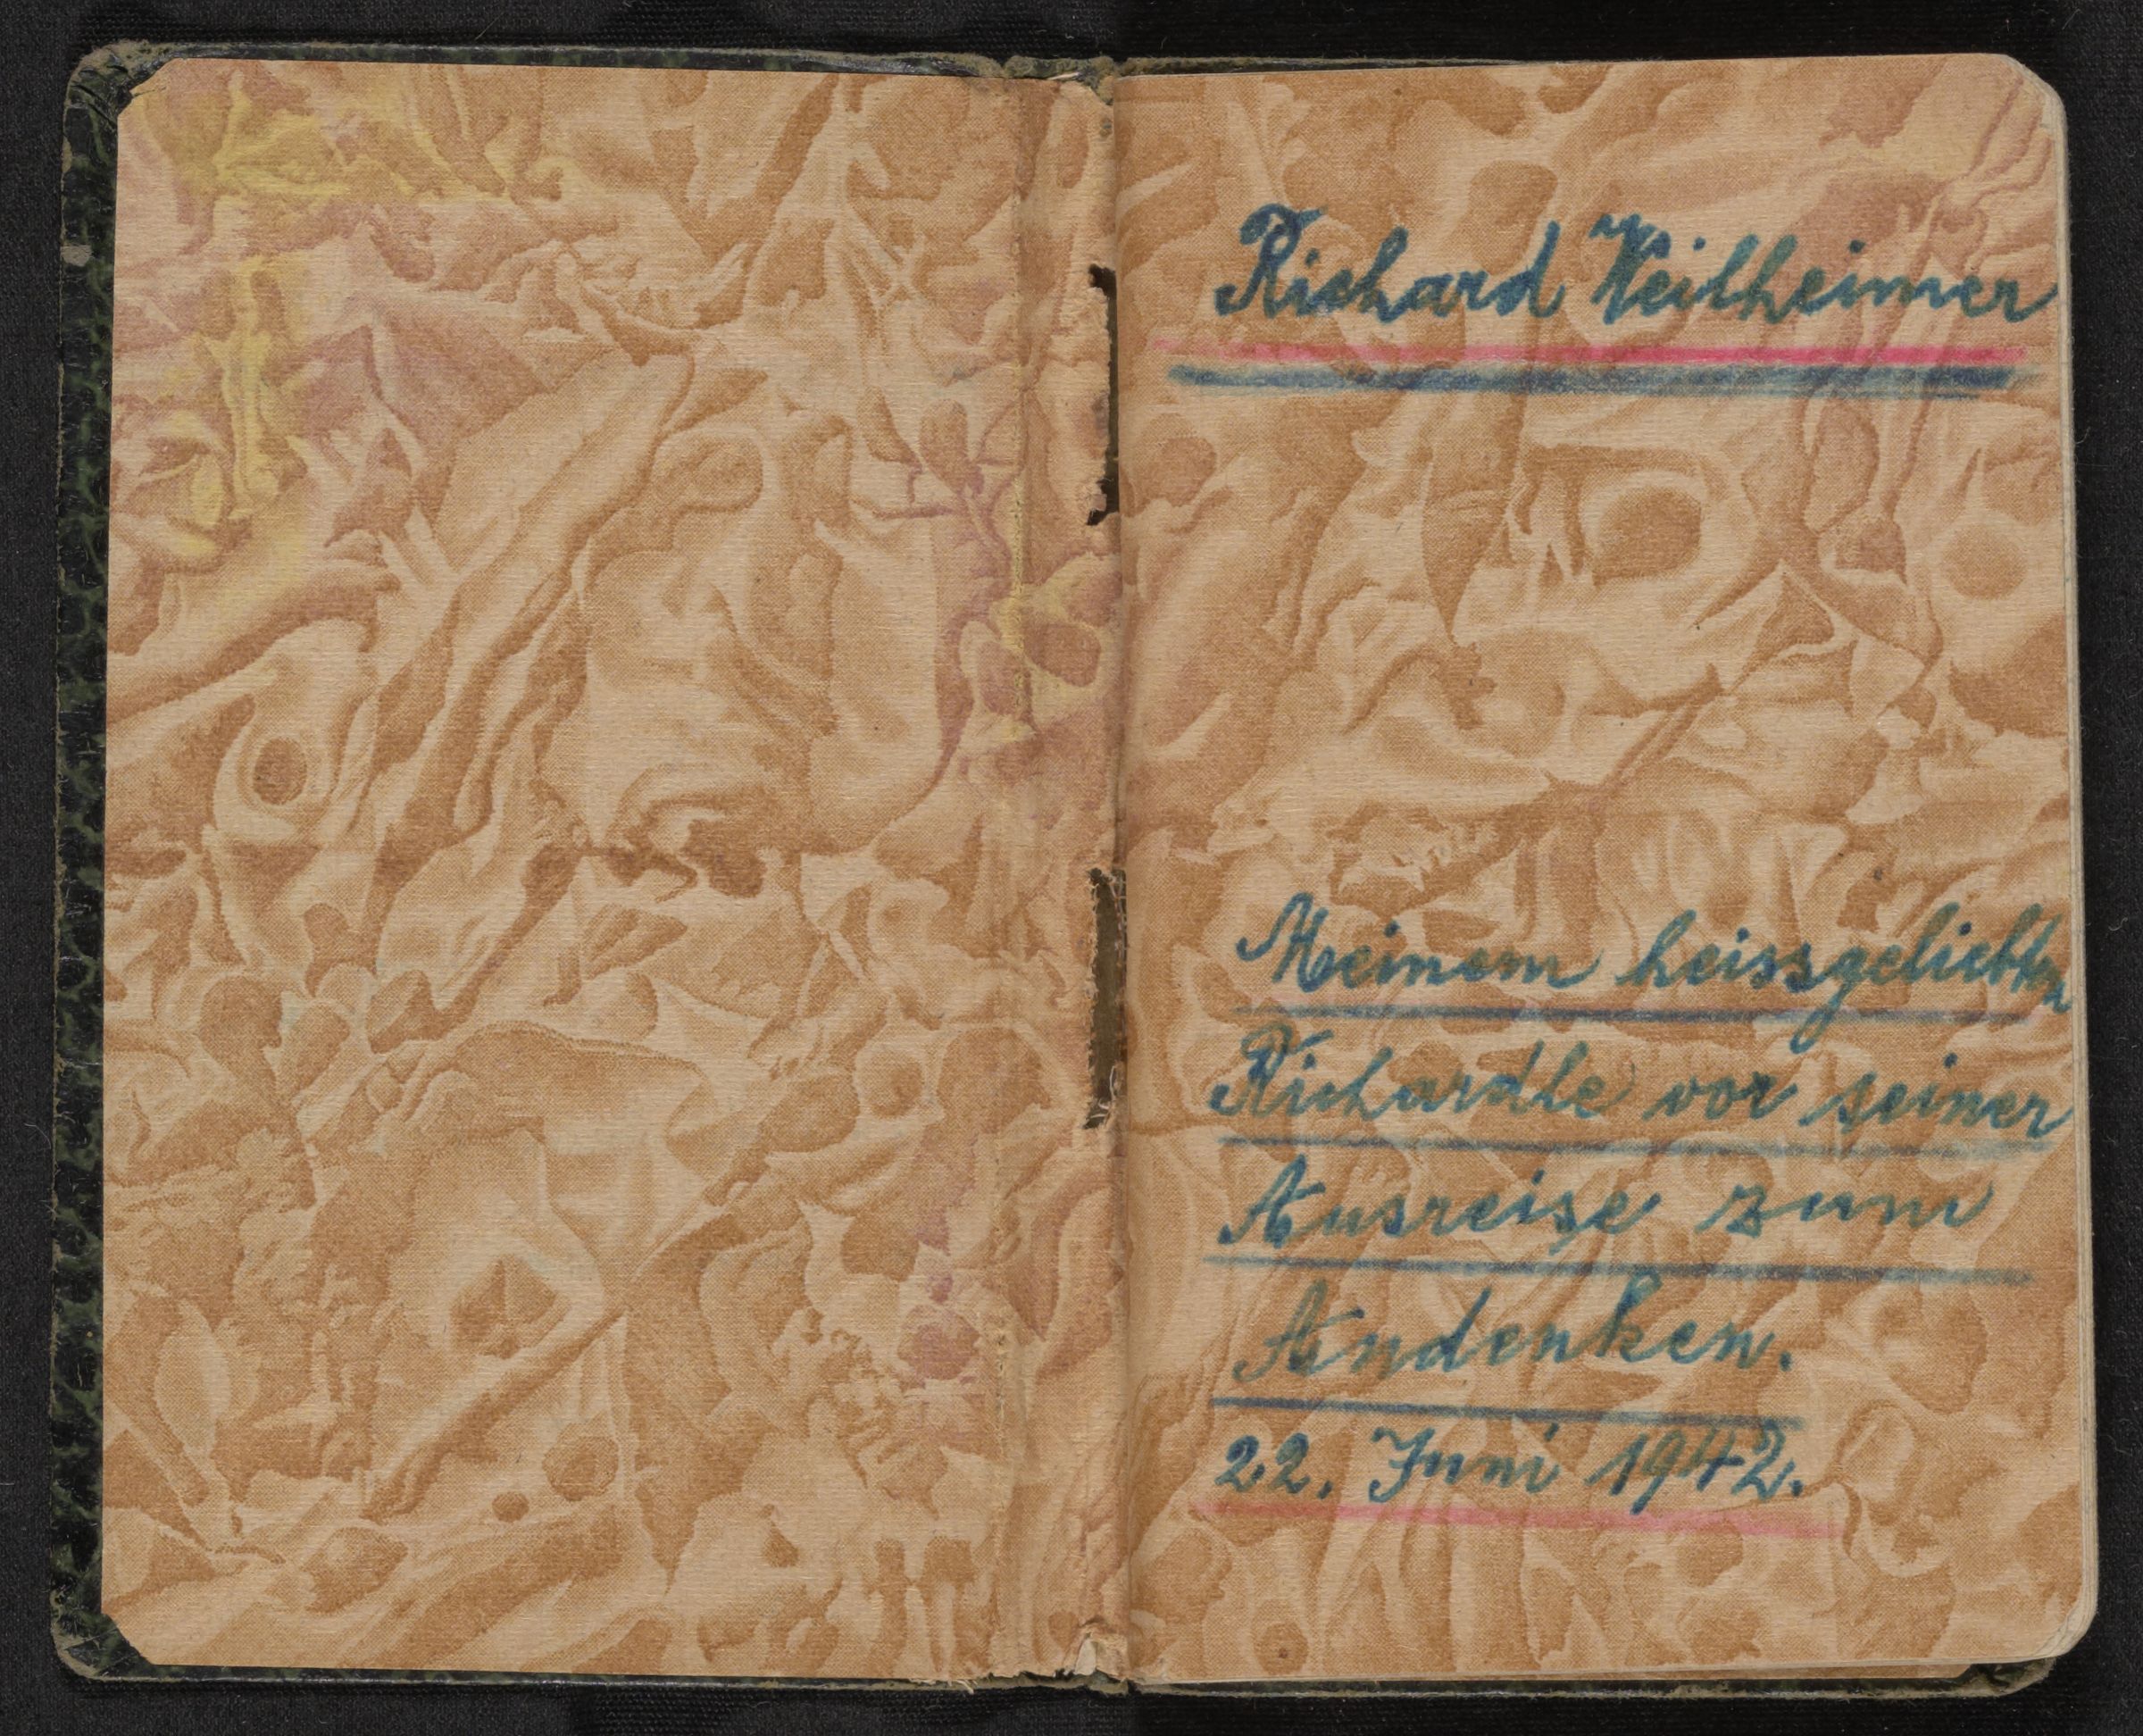 Richard Weilheimer
Meinem heissgeliebten
Richardle vor seiner
Ausreise zum
Andenken.
22. Juni 1942.